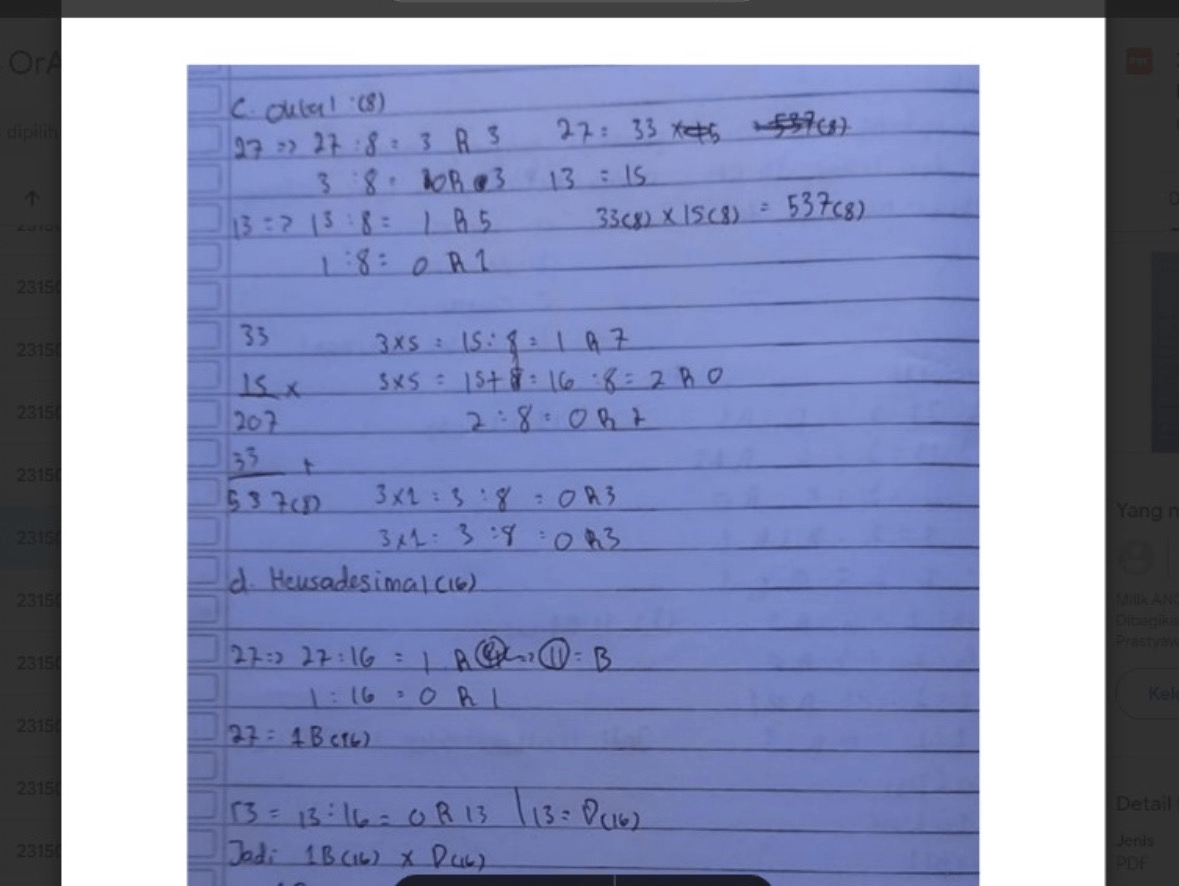 OrA
dipilih
C. Oktal (8)
27 => 27 : 8 = 3 R 3 27 = 33 537(8)
3 : 8 = 0 R 3 13 = 15
13 => 13 : 8 = 1 R 5 33(8) x 15(8) = 537(8)
1 : 8 = 0 R 1
33 3x5 = 15 : 8 = 1 R 7
15 x 3x5 = 15+1 = 16 : 8 = 2 R 0
207 2 : 8 = 0 R 2
33 +
537(8) 3x1 = 3 : 8 = 0 R3
3x1 = 3 : 8 = 0 R3
d. Heusadesimal (16)
27 => 27 : 16 = 1 R 11 = B
1 : 16 = 0 R 1
27 = 1B(16)
13 = 13 : 16 = 0 R 13 | 13 = D(16)
Jadi 1B(16) x D(16)
2315
2315
2315
2315
2315
2315
2315
2315
2315
Yang
Milik AN
Dibagika
Prastyaw
Kel
Detail
Jenis
PDF